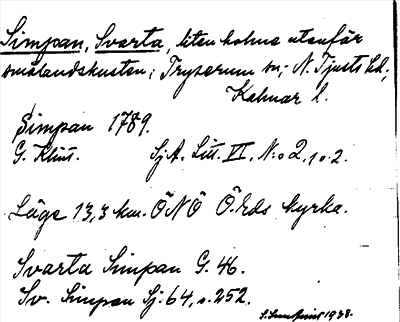 Simpan, Svarta, liten holme utanför
smålandskusten; Tryserum sn; N. Tjusts hd;
Kalmar l.
Simpan 1789.
G. Klint. Sj.A. Litt. VI, N:o 2, 1 o. 2.
Läge 13,3 km. ÖNÖ Ö. Eds kyrka.
Svarta Simpan G. 46.
Sv. Simpan Sj: 64, s. 252.
1938.